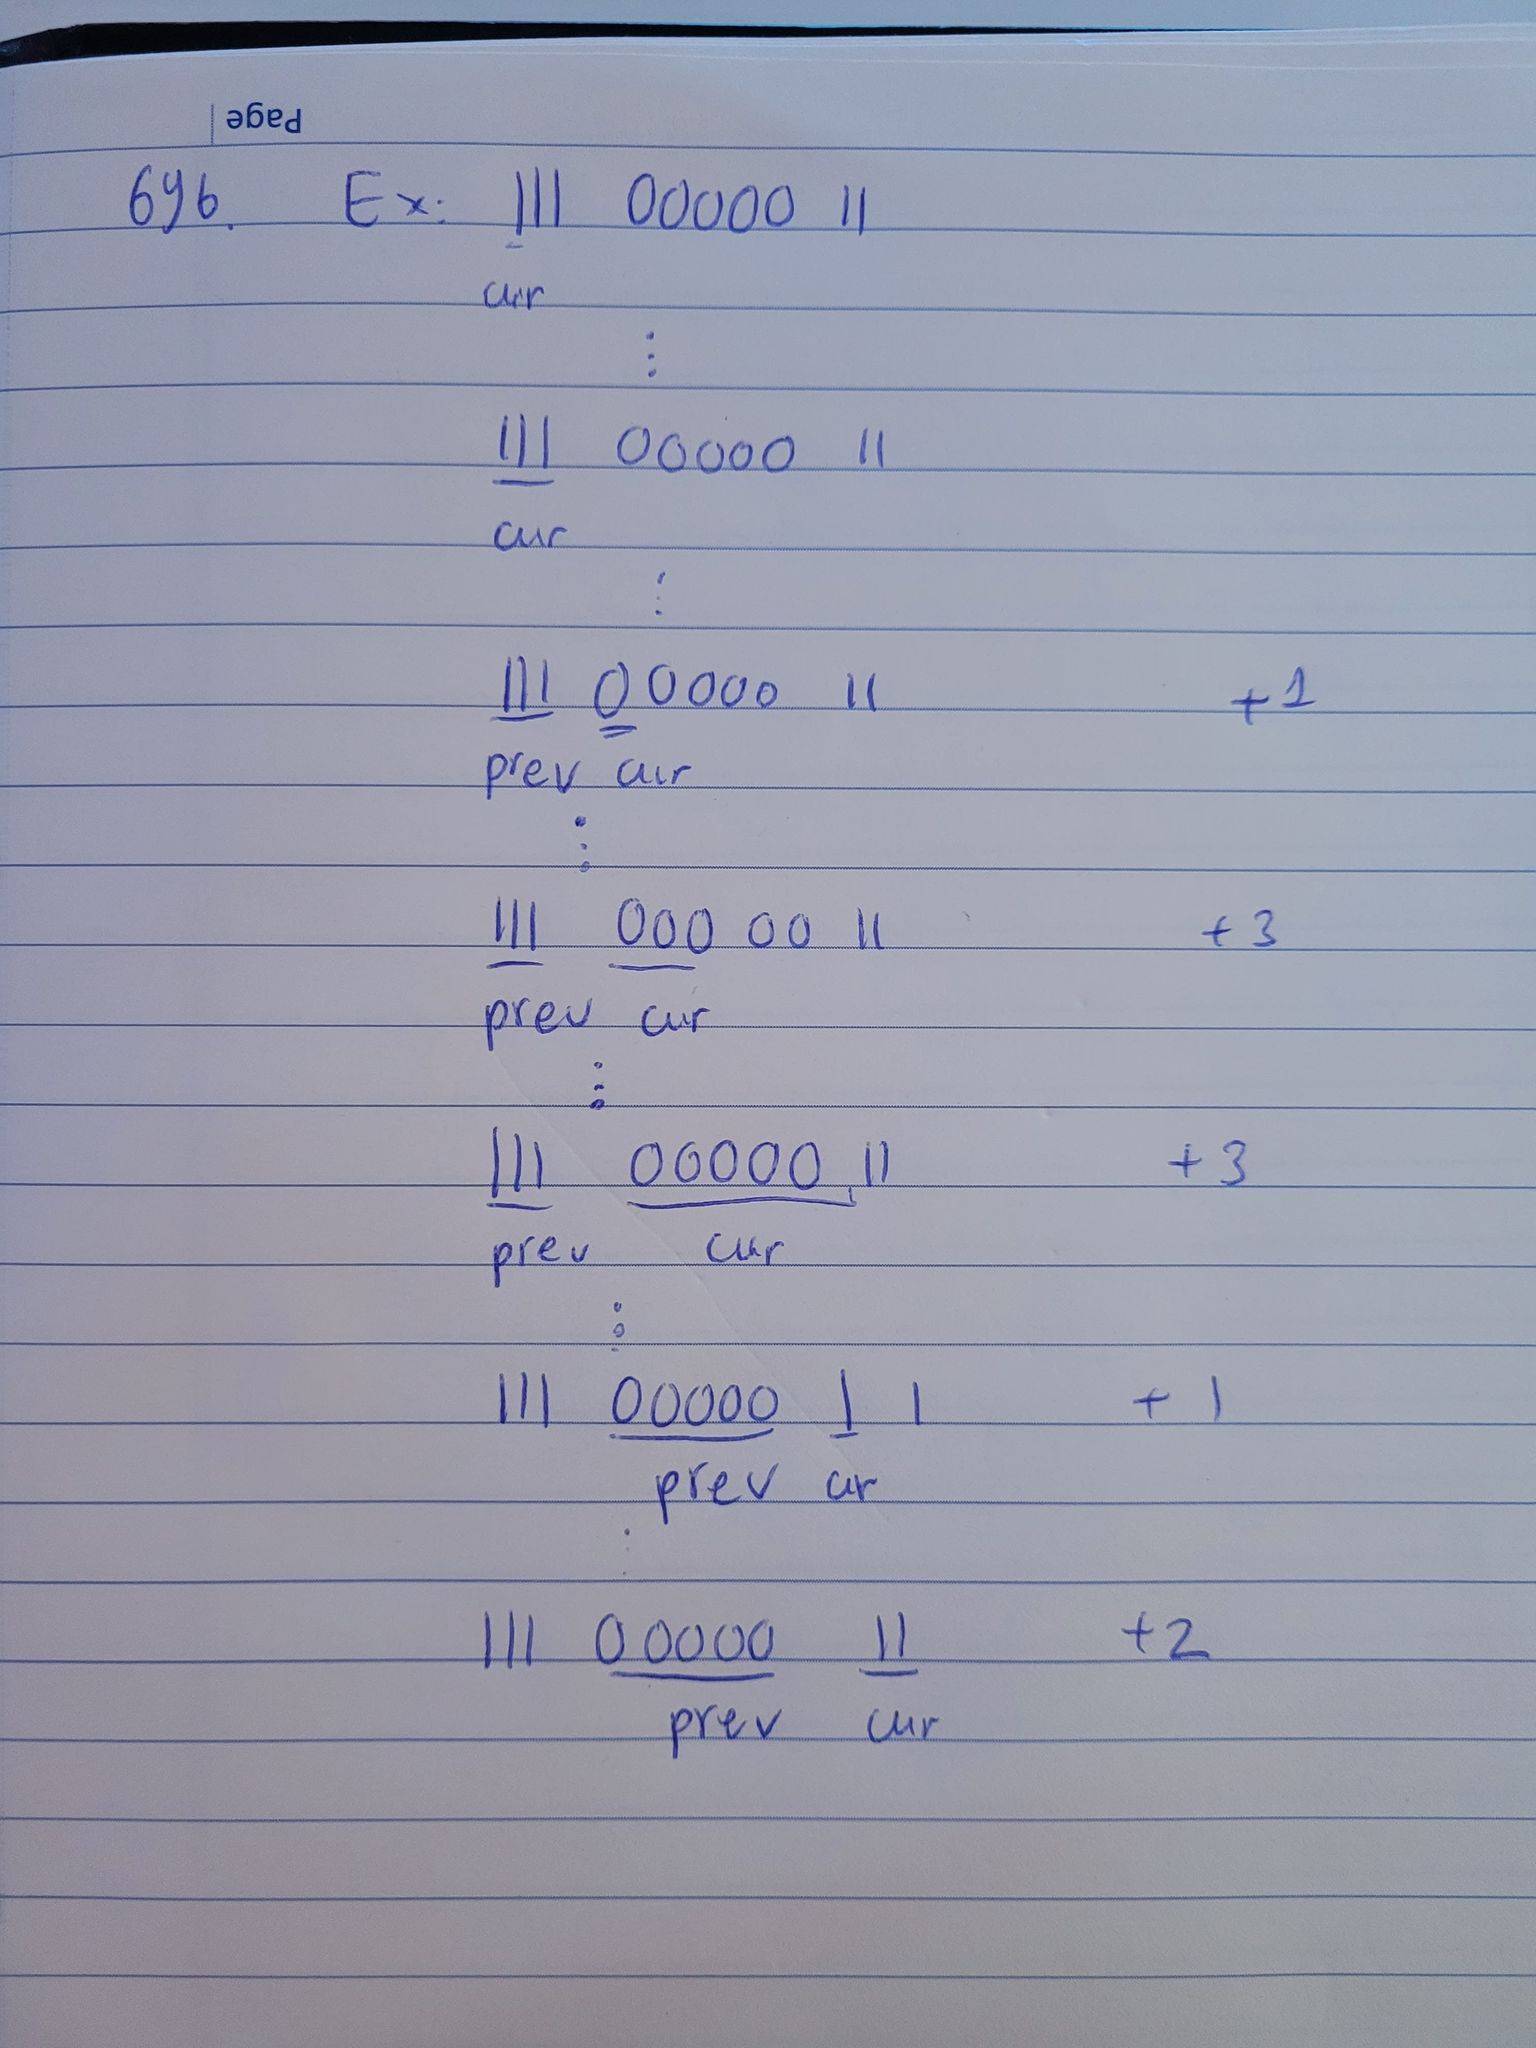 Page
696. Ex: 111 00000 11
cur
⋮
111 00000 11
cur
⋮
111 00000 11 +1
prev cur
⋮
111 000 00 11 +3
prev cur
⋮
111 00000 11 +3
prev cur
⋮
111 00000 1 1 +1
prev cur
⋮
111 00000 11 +2
prev cur